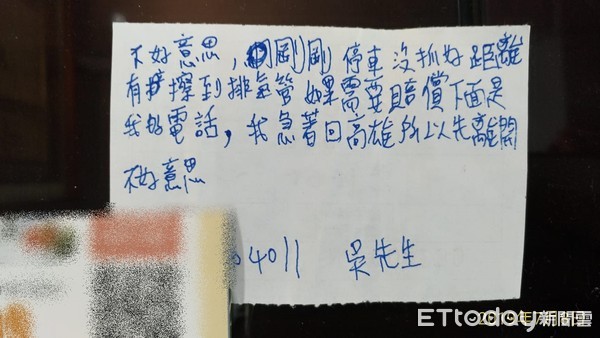 不好意思，剛剛停車沒抓好距離
有擦到排氣管如果需要賠償下面是
我的電話，我急著回高雄所以先離開
不好意思
4011 吳先生
ETtoday新聞雲